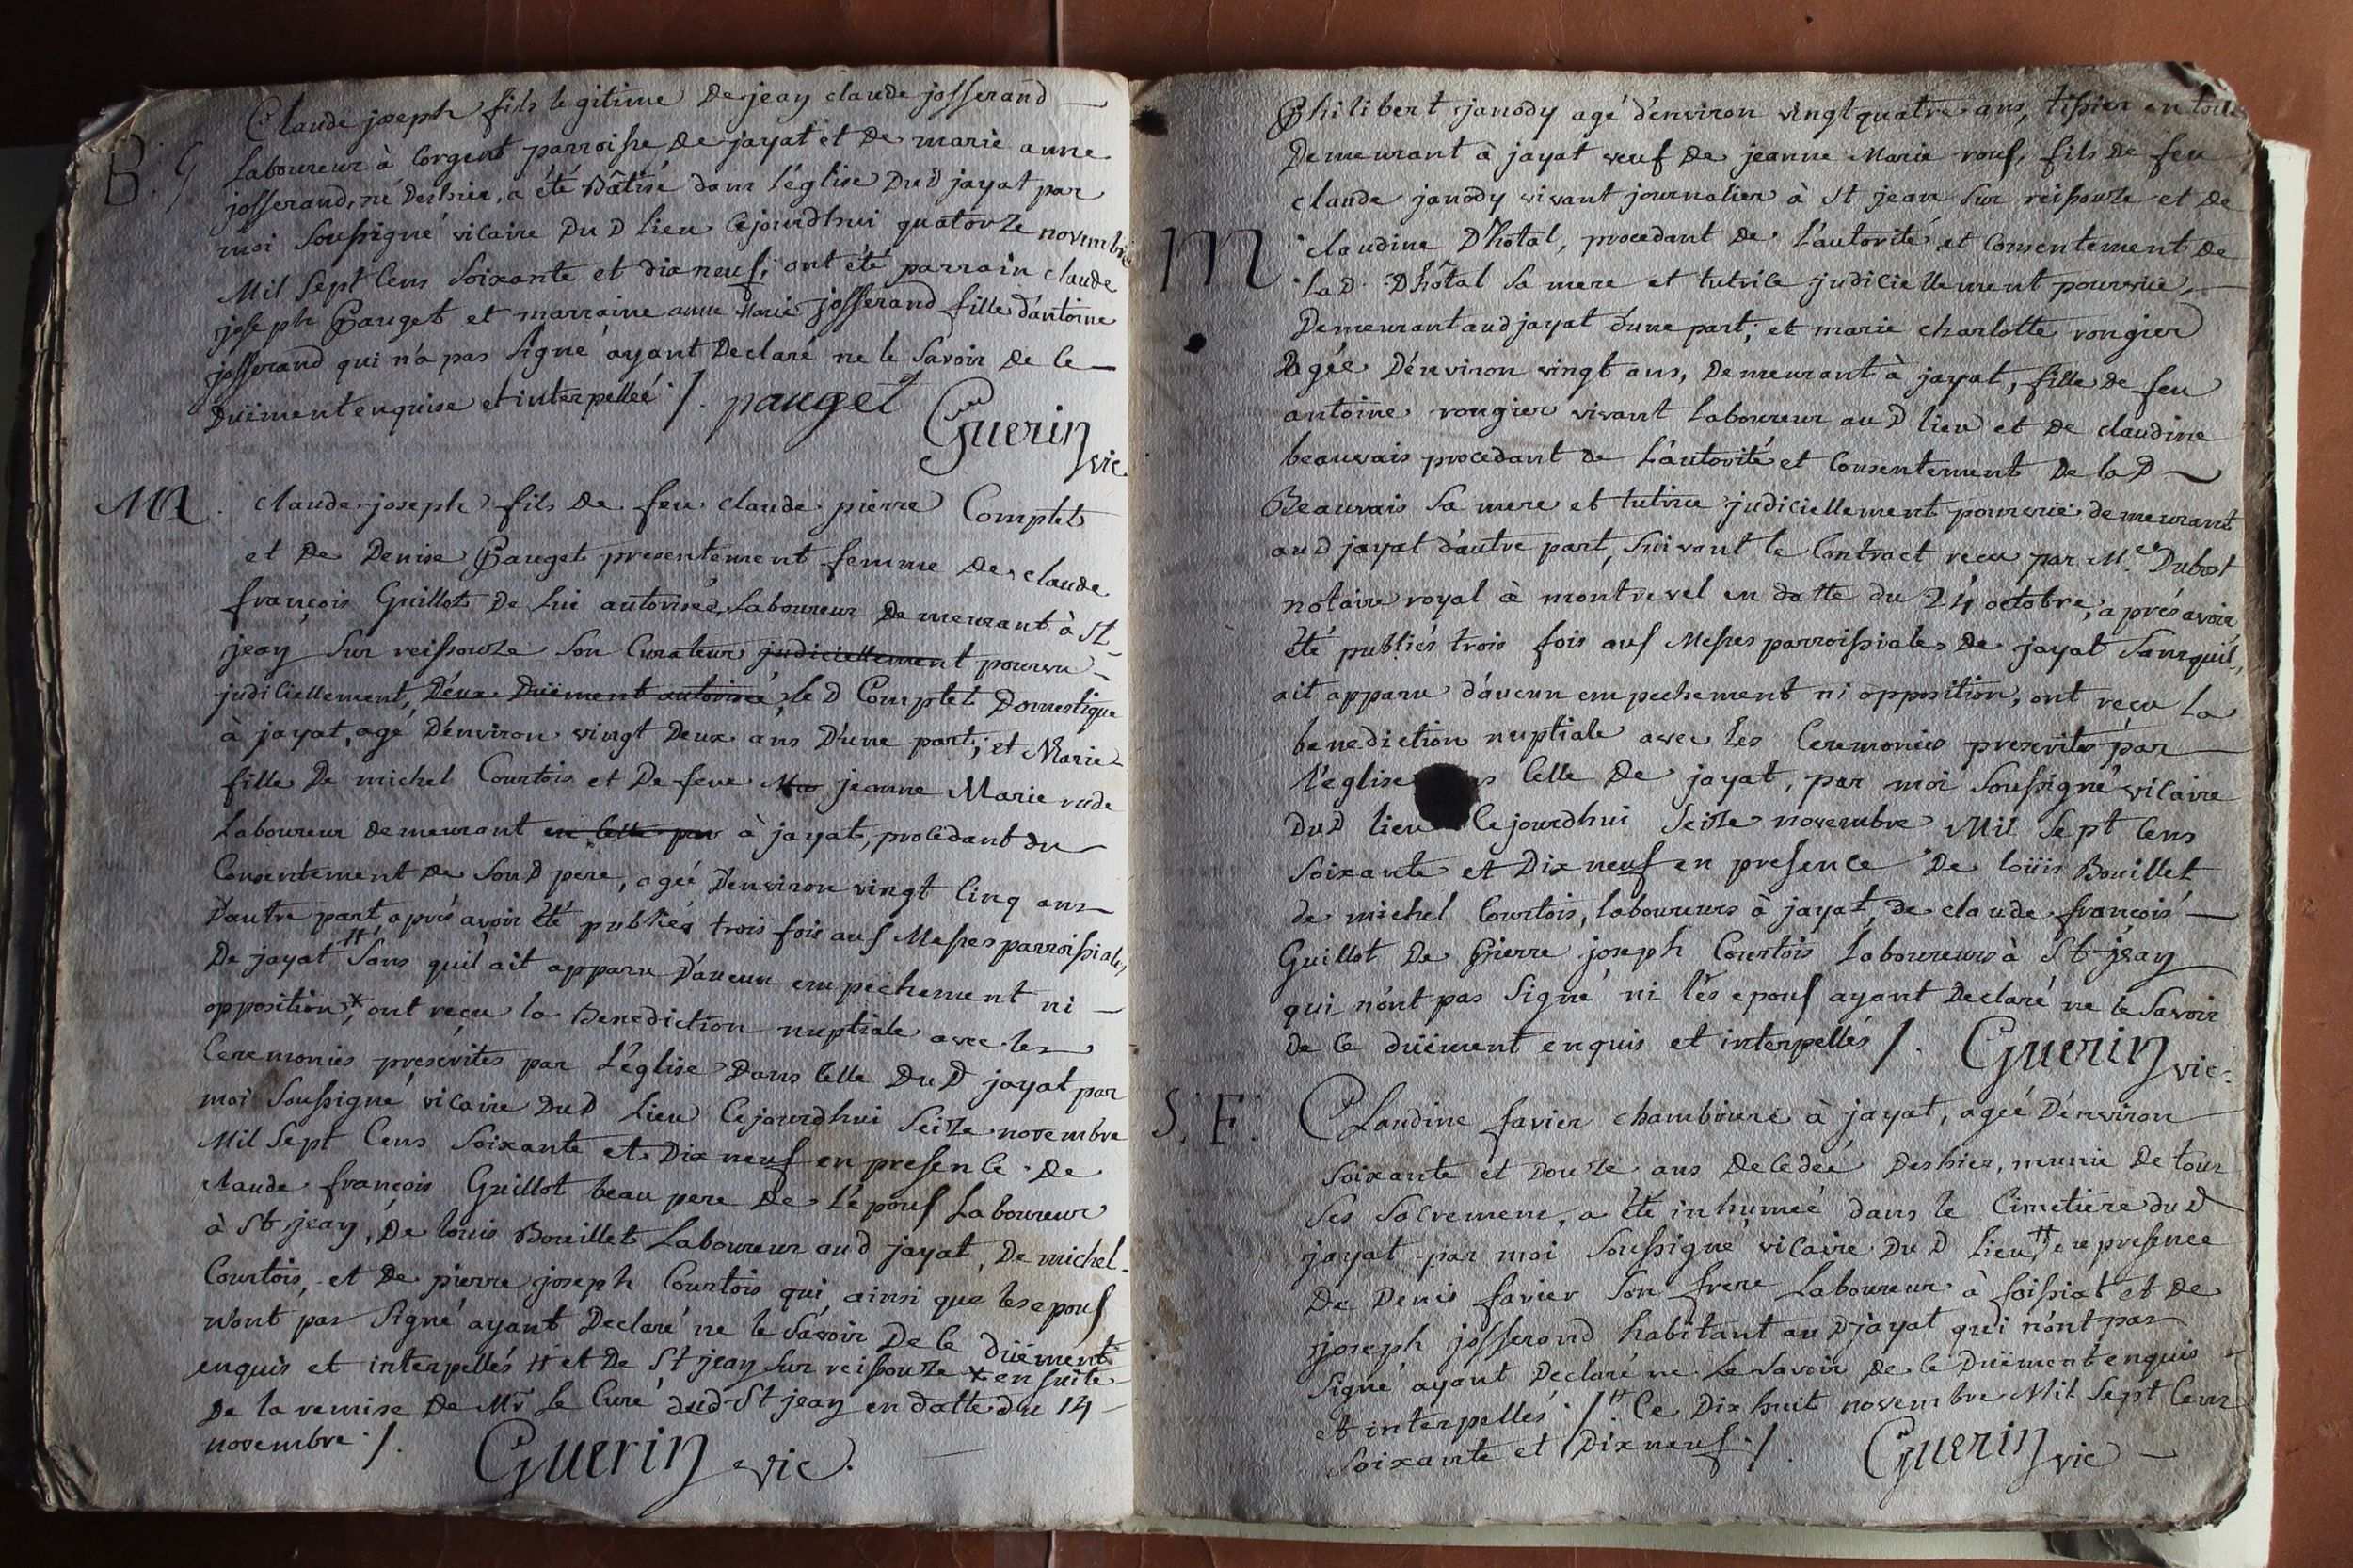 B. G
Claude joseph fils legitime De jean claude josserand
Laboureur à Corgent parroisse De jayat et De marie anne
josserand, né Des hier, a été Bâtisé dans l'église Du D jayat par
moi Soussigné vicaire Du D Lieu Cejourdhui quatorze novembre
Mil Sept Cens Soixante et dix neuf, ont été parrain claude
joseph Pauget et marraine anne Marie josserand fille d'antoine
josserand qui n'a pas Signé ayant Declaré ne le Savoir De Ce
Duëment enquise et interpellée /. pauget
Guerin vic.
M.
Claude joseph fils De feu Claude pierre Comptet
et De Denise Pauget presentement femme De claude
françois Guillot De lui autorisée, Laboureur Demeurant à St
jean Sur reissouze Son Curateur judiciellement pourvu
judiciellement, D'eux Duëment autorisé, le D Comptet Domestique
à jayat, agé D'environ vingt Deux ans D'une part; et Marie
fille De michel Courtois et De feue Mar jeanne Marie rude
Laboureur demeurant en cette par à jayat, procedant du
Consentement De Son D pere, agée D'environ vingt Cinq ans
D'autre part, aprés avoir été publiés trois fois aus Messes parroissiales
De jayat # Sans quil ait apparu D'aucun empechement ni
opposition *, ont reçu la Benediction nuptiale avec les
Ceremonies prescrites par L'église Dans Celle Du D jayat par
moi Soussigné vicaire Du D Lieu Cejourdhui Seize novembre
Mil Sept Cens Soixante et Dix neuf en presence De
claude françois Guillot beau pere De L'epous Laboureur
à St jean, De louis Bouillet Laboureur au D jayat, De michel
Courtois, et De pierre joseph Courtois qui ainsi que les epous
n'ont pas Signé ayant Declaré ne le Savoir De Ce Duëment
enquis et interpellés # et De St jean Sur reissouze * en suite
De la remise De Mr Le Curé dud St jean en datte du 14
novembre /.
Guerin vic.
M
Philibert janody agé d'environ vingt quatre ans, tissier en toile
Demeurant à jayat veuf De jeanne Marie rouf, fils De feu
claude janody vivant journalier à St jean Sur reissouze et De
claudine D'hotal, procedant De L'autorité et Consentement De
la D. D'hôtal Sa mere et tutrice judiciellement pourvue,
Demeurant aud jayat d'une part; et marie charlotte rongier
Agée D'environ vingt ans, Demeurant à jayat, fille De feu
antoine rongier vivant Laboureur au D lieu et De claudine
beauvais procedant De L'autorité et Consentement De la D
Beauvais Sa mere et tutrice judiciellement pourvue demeurant
au D jayat d'autre part, Suivant le Contract recu par Me Dubost
notaire royal à montrevel en datte du 24 octobre, aprés avoir
été publiés trois fois aus Messes parroissiales De jayat Sans quil
ait apparu d'aucun empechement ni opposition, ont reçu La
benediction nuptiale avec Les Ceremonies prescrites par
L'eglise Celle De jayat, par moi Soussigné vicaire
Du D lieu Cejourdhui Seize novembre Mil Sept Cens
Soixante et Dix neuf en presence De loüis Bouillet
de michel Courtois, laboureurs à jayat, De claude françois
Guillot De Pierre joseph Courtois Laboureurs à St jean
qui n'ont pas Signé ni les epous ayant Declaré ne le Savoir
De Ce duëment enquis et interpellés /. Guerin vic.
S. F.
Claudine favier chambriere à jayat, agée D'environ
Soixante et Douze ans Decedée Des hier, munie De tous
Ses Sacremens, a été inhumée dans le Cimetiere du D
jayat par moi Soussigné vicaire Du D Lieu # en presence
De Denis favier Son frere Laboureur à foissiat et De
joseph josserand habitant au D jayat qui n'ont pas
Signé ayant Declaré ne Le Savoir De Ce Duëment enquis
et interpellés /. # Ce Dix huit novembre Mil Sept Cens
Soixante et Dix neuf /. Guerin vic